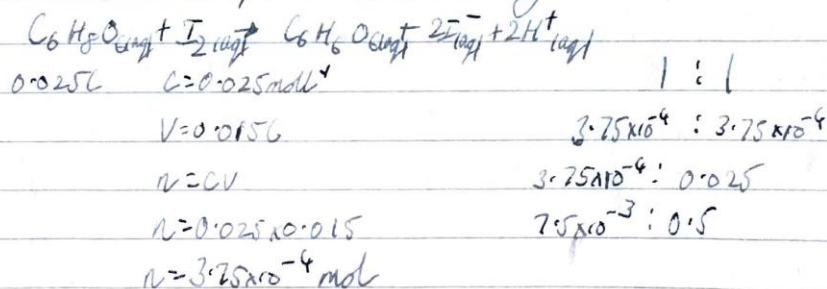 C₆H₈O₆(aq) + I₂(aq) → C₆H₆O₆(aq) + 2I⁻(aq) + 2H⁺(aq)
0.025L C=0.025molL⁻¹ 1 : 1
V=0.015L 3.75x10⁻⁴ : 3.75x10⁻⁴
n=CV 3.75x10⁻⁴ : 0.025
n=0.025x0.015 7.5x10⁻³ : 0.5
n=3.75x10⁻⁴ mol